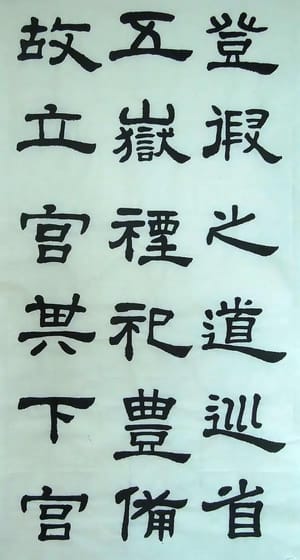 登假之道巡省
五嶽禋祀豊備
故立宮其下宮